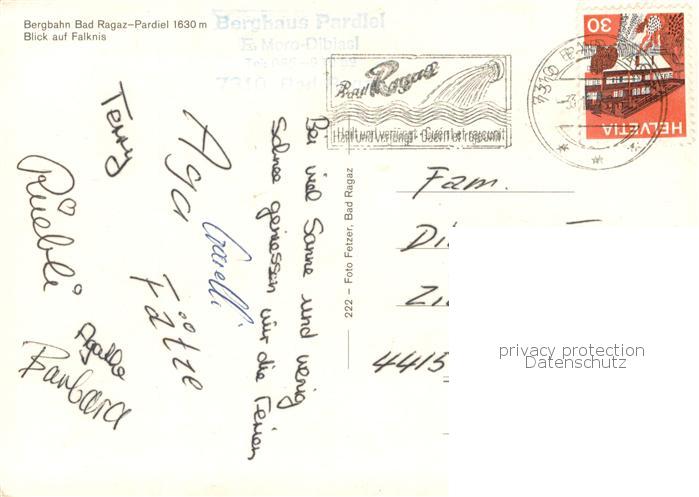 Bergbahn Bad Ragaz–Pardiel 1630 m
Blick auf Falknis
Berghaus Pardiel
Moro-Dibiasi
7310 Bad
Bad Ragaz
Heilt und verjüngt - Guérit et rajeunit
7310 BAD
30
HELVETIA
Bei viel Sonne und wenig
Schnee geniessen wir die Ferien
Terry
Aga
Fätze
Rüebli
Barbara
222 – Foto Fetzer, Bad Ragaz
Fam.
4415
privacy protection
Datenschutz